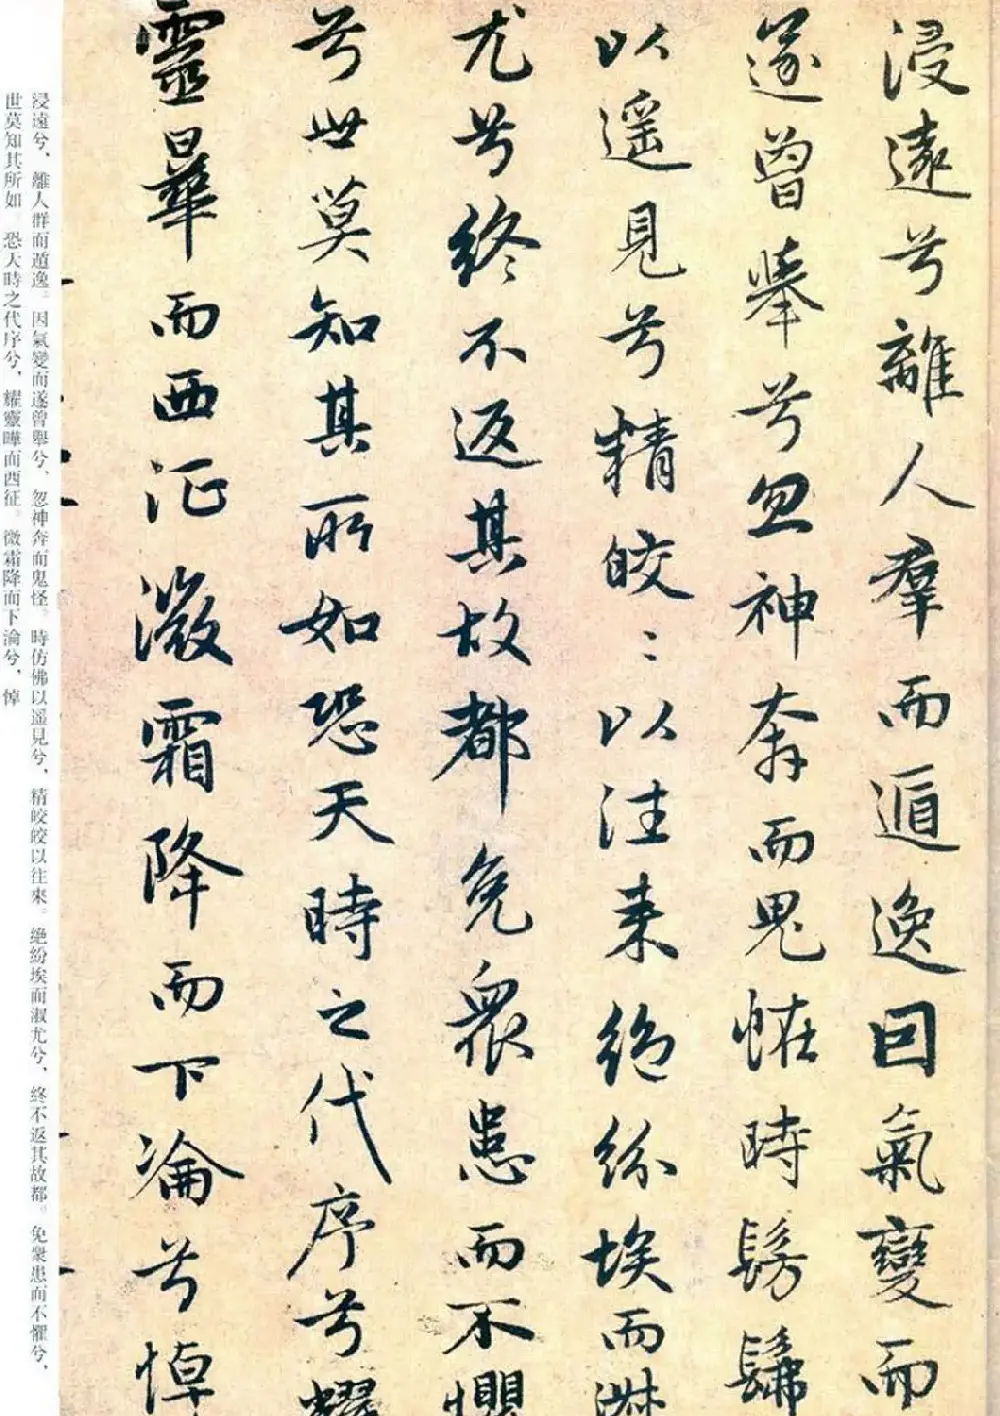 浸遠兮離人羣而遁逸因氣變而
遂曾舉兮忽神奔而鬼恠時髣髴
以遥見兮精皎〻以往来絶紛埃而淑
尤兮终不返其故都免衆患而不懼
兮世莫知其所如恐天時之代序兮耀
靈曅而西征微霜降而下淪兮悼
浸遠兮、離人群而遁逸。因氣變而遂曾舉兮、忽神奔而鬼怪。時仿佛以遥見兮、精皎皎以往來。絶紛埃而淑尤兮、终不返其故都。免衆患而不懼兮、
世莫知其所如。恐天時之代序兮、耀靈曄而西征。微霜降而下淪兮、悼